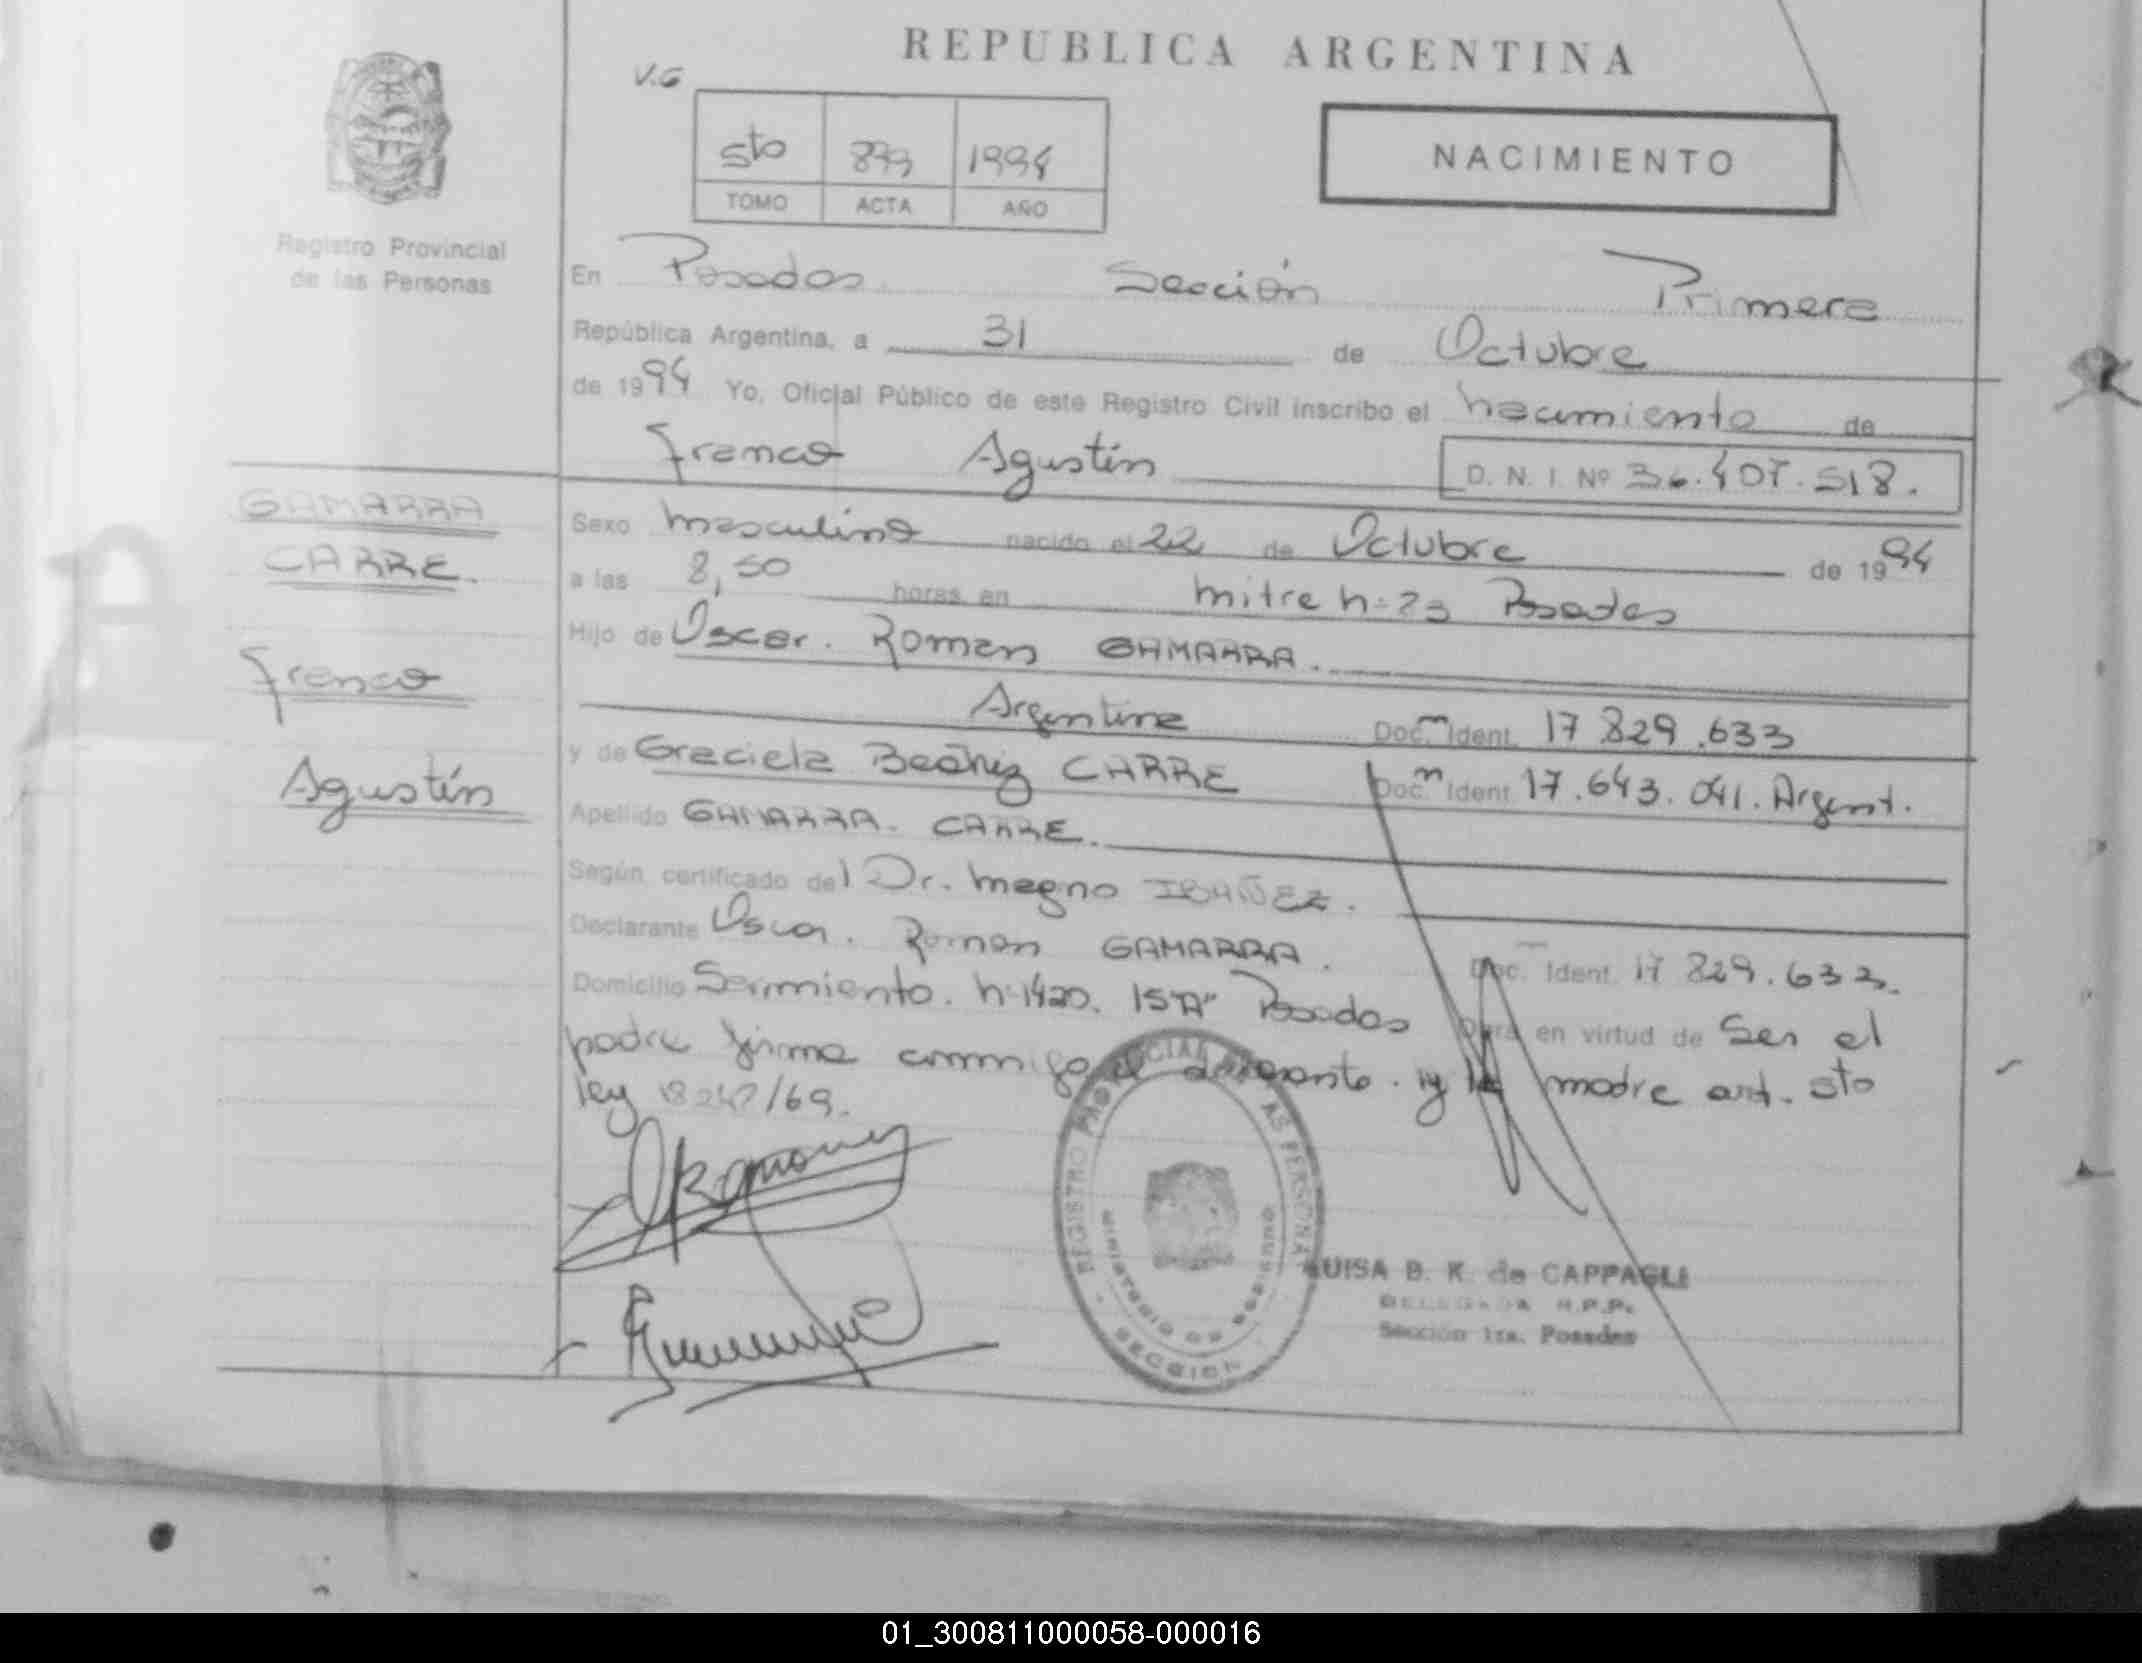 REPUBLICA ARGENTINA
V.G
5to 899 1994
TOMO ACTA AÑO
NACIMIENTO
Registro Provincial
de las Personas
En Posadas Sección Primera
República Argentina, a 31 de Octubre
de 1994 Yo, Oficial Público de este Registro Civil inscribo el nacimiento de
Franco Agustín D. N. I. Nº 36.407.518.
GAMARRA
CARRE.
Franco
Agustín
Sexo masculino nacido el 22 de Octubre de 1994
a las 8,50 horas en mitre n: 23 Posadas
Hijo de Oscar. Roman GAMARRA.
Argentina Doc. Ident. 17 829.633
y de Graciela Beatriz CARRE Doc. Ident. 17.643.041. Argent.
Apellido GAMARRA. CARRE.
Según certificado del Dr. Magno IBAÑEZ.
Declarante Oscar. Roman GAMARRA. Doc. Ident. 17 829.633.
Domicilio Sarmiento. n: 1420. 15"A" Posadas Obra en virtud de Ser el
padre firma conmigo el declarante. y la madre art. 5to
ley 18247/69.
REGISTRO PROVINCIAL DE LAS PERSONAS
MINISTERIO DE GOBIERNO
SECCION
LUISA B. K. de CAPPAGLI
DELEGADA R.P.P.
Sección 1ra. Posadas
01_300811000058-000016